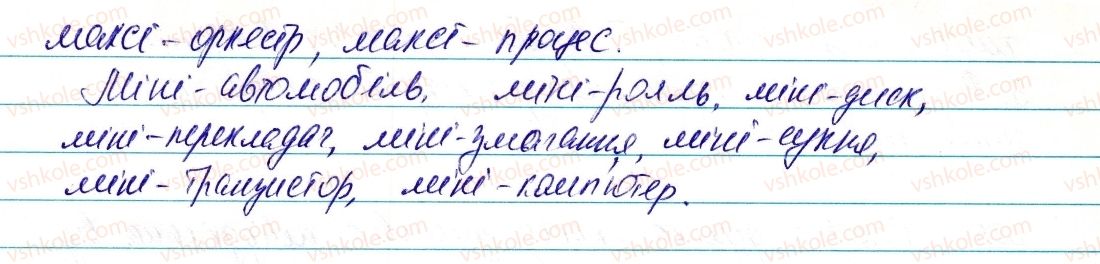 максі-оркестр, максі-процес.
Міні-автомобіль, міні-рояль, міні-диск,
міні-перекладач, міні-змагання, міні-сукня,
міні-транзистор, міні-комп'ютер.